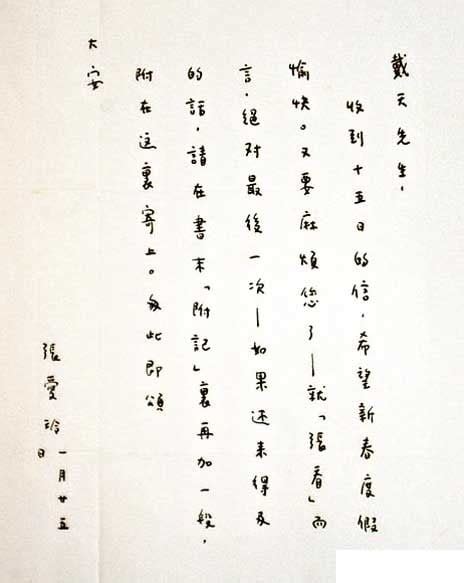 戴天先生，
收到十五日的信，希望新春度假
愉快。又要麻煩您了—就「張看」而
言，絕对最後一次—如果还来得及
的話，請在書末「附記」裏再加一段，
附在这裏寄上。匆此即頌
大安
張愛玲 一月廿五
日